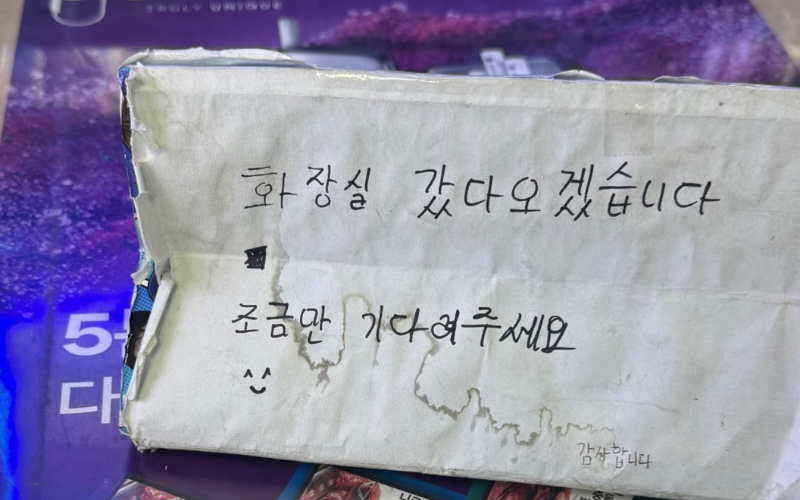 TRULY UNIQUE
화장실 갔다오겠습니다
조금만 기다여주세요
감사합니다
5
대